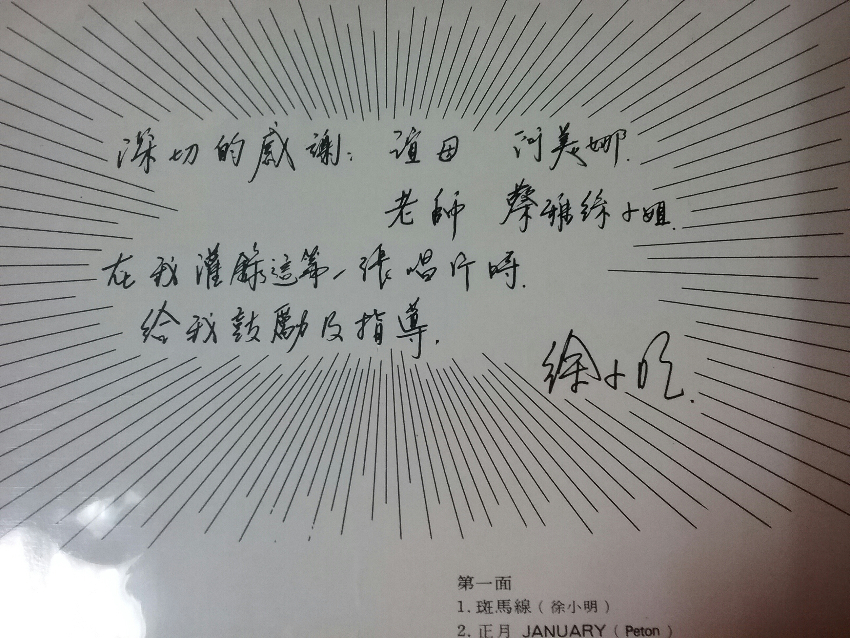 深切的感謝: 誼母 河美娜.
老師 蔡雅絲小姐.
在我灌錄這第一張唱片時.
給我鼓勵及指導.
徐小明.
第一面
1. 斑馬線 ( 徐小明 )
2. 正月 JANUARY ( Peton )